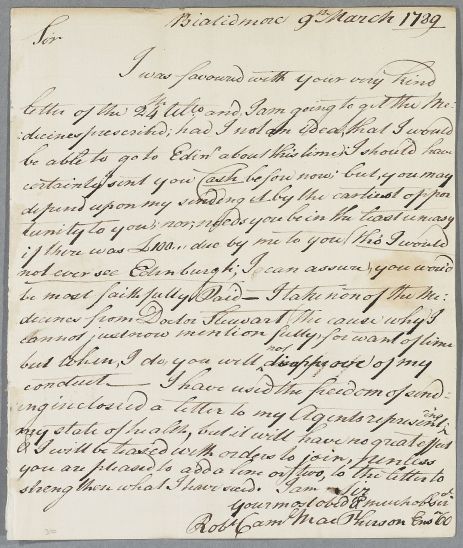 Bialidmore 9th March 1789
Sir
I was favoured with your very kind
letter of the 24th ulto and, I am going to get the Me-
:decines prescribed; had I not an idea, that I would
be able to go to Edinr about this time; I should have
certainly sent you Cash before now: but, you may
depend upon my sending it by the earliest oppor
tunity to you; nor, needs you be in the least uneasy
if there was £100.. due by me to you (tho I would
not ever see Edinburgh; I can assure, you would
be most faithfully Paid — I take non of the Me-
decines from Doctor Stewart (the cause why I
cannot just now mention fully, for want of time
but when, I do, you will not disapprove of my
conduct — I have used the freedom of send-
ing inclosed a letter to my Agents representing
my state of health, but it will have no great effect
& I will be teased with orders to join, unless
you are pleased to add a line or two, to the letter to
strengthen what I have said. I am Sir
your most obedt & much oblgd Sert
Robt Caml MacPherson Ensn 60